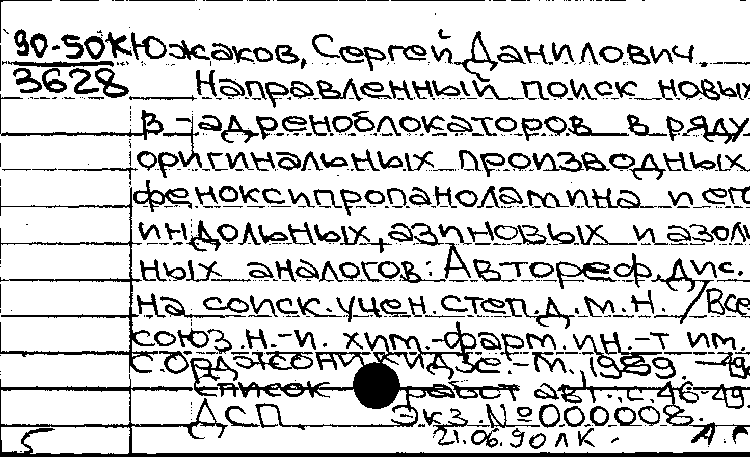 90-50К Южаков, Сергей Данилович.
3628 Направленный поиск новых
β-адреноблокаторов в ряду
оригинальных производных
феноксипропаноламина и его
индольных, азиновых и азоль
ных аналогов: Автореф. дис.
на соиск. учен. степ. д.м.н. /Все
союз. н.-и. хим.-фарм. ин.-т им.
С. Орджоникидзе.-М., 1989. -49
Список работ авт. с. 46-49.
ДСП Экз. №000008.
5 21.06.90 ЛК-